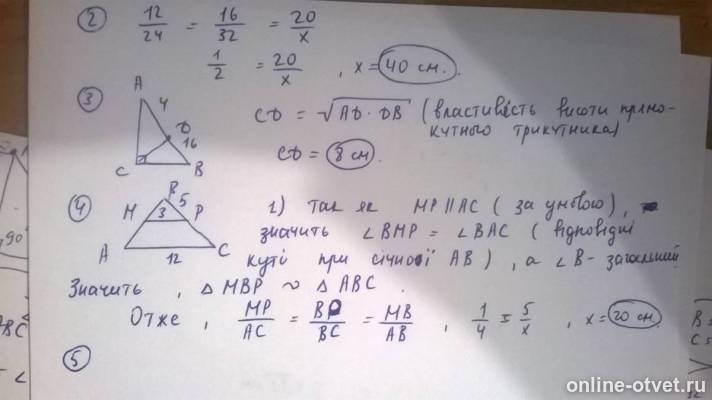 ② 12/24 = 16/32 = 20/x
1/2 = 20/x , x = 40 см.
③ A 4 D 16 C B
CD = √AD · DB (властивість висоти прямо-
кутного трикутника)
CD = 8 см
④ B 5 M 3 P A 12 C
1) так як MP || AC ( за умовою ) ,
значить ∠BMP = ∠BAC ( відповідні
куті при січної AB ) , а ∠B - загальний
Значить , △ MBP ~ △ ABC .
Отже , MP/AC = BP/BC = MB/AB , 1/4 = 5/x , x = 20 см.
⑤
90°
BC
B =
C =
online-otvet.ru